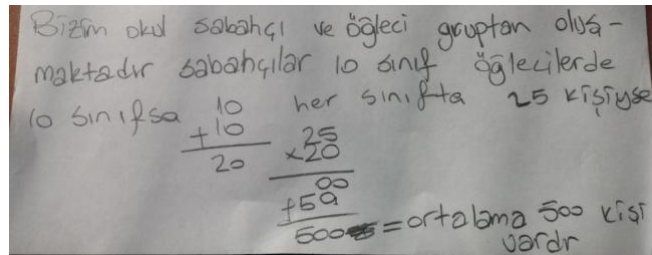 Bizim okul sabahçı ve öğleci gruptan oluş-
maktadır sabahçılar 10 sınıf öğlecilerde
10 sınıfsa 10 her sınıfta 25 kişiyse
+10 25
20 x20
00
+50
500 = ortalama 500 kişi
vardr